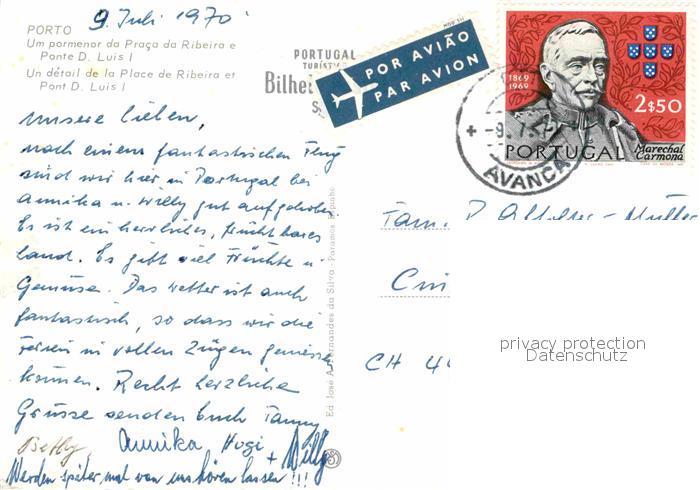 9. Juli 1970
PORTO
Um pormenor da Praça da Ribeira e
Ponte D. Luis I
Un détail de la Place de Ribeira et
Pont D. Luis I
PORTUGAL
Bilhe
POR AVIÃO
PAR AVION
1869
1969
2$50
PORTUGAL
Marechal
Carmona
AVANCA
Unsere Lieben,
nach einem fantastischen Flug
sind wir hier in Portugal bei
Annika u. Willy gut aufgehobe
Es ist ein herrliches, fruchtbares
Land. Es gibt viel Früchte u
Gemüse. Das Wetter ist auch
fantastisch, so dass wir die
Ferien in vollen Zügen geniesse
können. Recht herzliche
Grüsse senden Euch Fanny
Betty, Annika Hugi + Willy
Werden später mal von uns hören lassen !!!
Ed. José A. Fernandes da Silva - Paramos Espinho
Fam. Müller
CH 4
privacy protection
Datenschutz